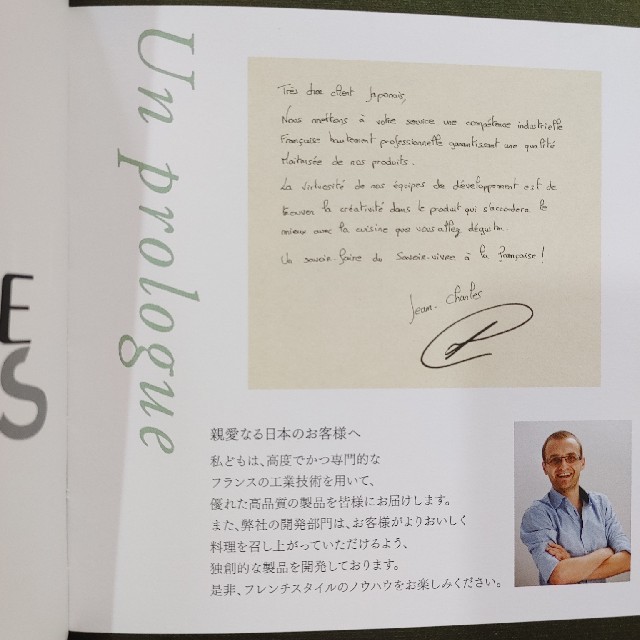 Un prologue
Très cher client Japonais,
Nous mettons à votre service une compétence industrielle
Française hautement professionnelle garantissant une qualité
Maitrisée de nos produits.
La virtuosité de nos équipes de développement est de
trouver la créativité dans le produit qui s'accordera le
mieux avec la cuisine que vous allez déguster.
Un savoir-faire du Savoir-vivre à la Française !
Jean-Charles
親愛なる日本のお客様へ
私どもは、高度でかつ専門的な
フランスの工業技術を用いて、
優れた高品質の製品を皆様にお届けします。
また、弊社の開発部門は、お客様がよりおいしく
料理を召し上がっていただけるよう、
独創的な製品を開発しております。
是非、フレンチスタイルのノウハウをお楽しみください。
E
S